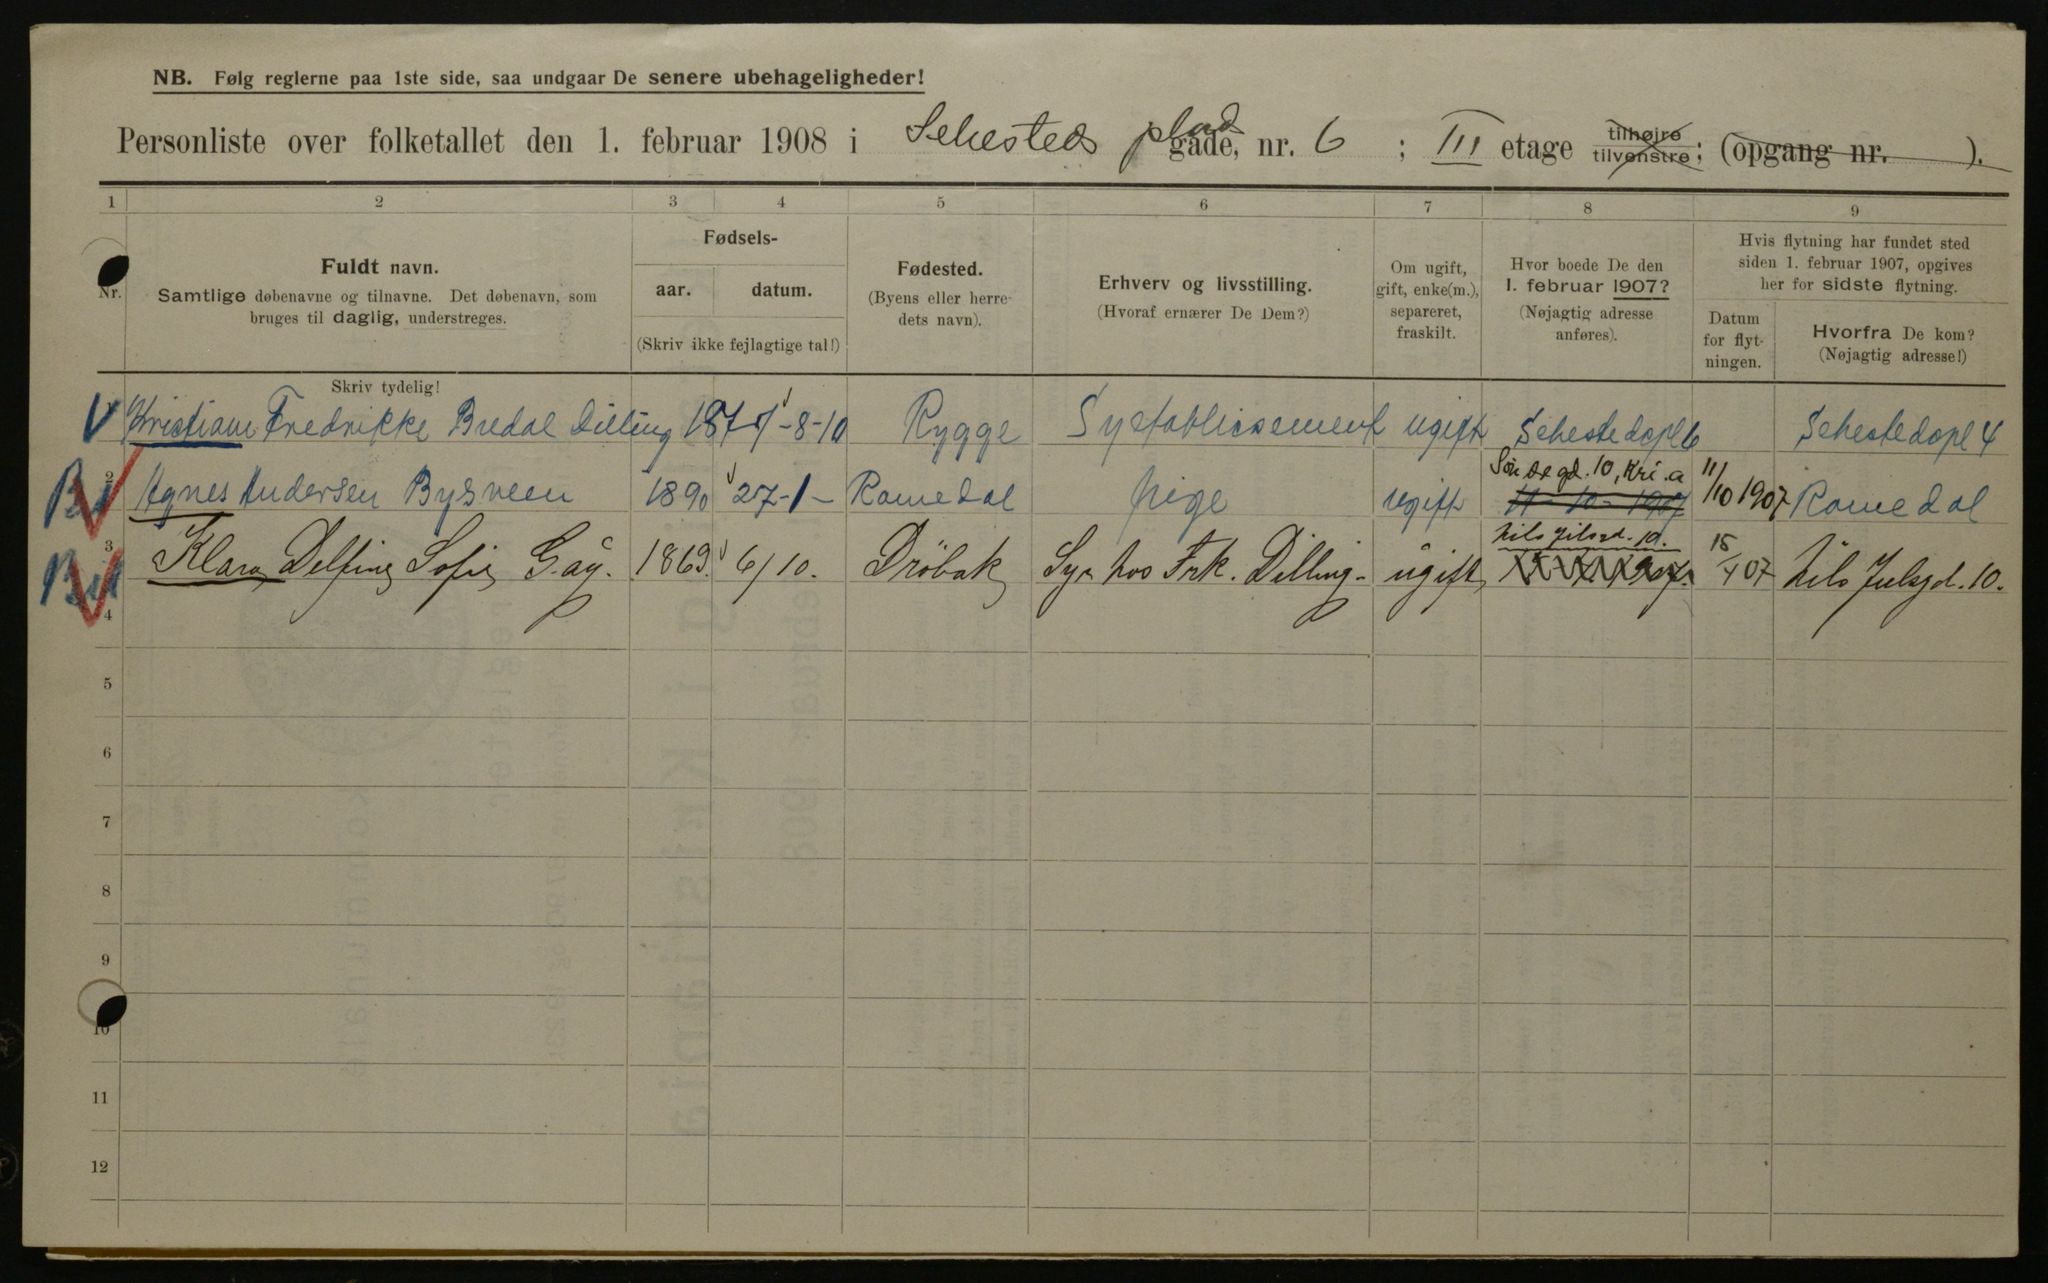 NB. Følg reglerne paa 1ste side, saa undgaar De senere ubehageligheder!
Personliste over folketallet den 1. februar 1908 i Sehesteds plads gade, nr. 6 ; III etage tilhøjre tilvenstre; (opgang nr. ).
1 2 3 4 5 6 7 8 9
Nr.
Fuldt navn.
Samtlige døbenavne og tilnavne. Det døbenavn, som
bruges til daglig, understreges.
Skriv tydelig!
Fødsels-
aar. datum.
(Skriv ikke fejlagtige tal!)
Fødested.
(Byens eller herre-
dets navn).
Erhverv og livsstilling.
(Hvoraf ernærer De Dem?)
Om ugift,
gift, enke(m.),
separeret,
fraskilt.
Hvor boede De den
1. februar 1907?
(Nøjagtig adresse
anføres).
Hvis flytning har fundet sted
siden 1. februar 1907, opgives
her for sidste flytning.
Datum
for flyt-
ningen.
Hvorfra De kom?
(Nøjagtig adresse!)
Kristiane Fredrikke Bredal Dilling -8-10 Rygge Syetablissement ugift Sehestedspl 6 Sehestedspl 4
2 Agnes Andersen Bysveen 1890 27-1- Romedal pige ugift 10, Kr.a 11/10 1907 Romedal
3 Klara Delfine Sofie Gay. 1869. 6/10. Drøbak Sye hos Frk. Dilling. ugift Nils Julsgd. 10. 15/4 07 Nils Julsgd. 10.
4
5
6
7
8
9
10
11
12